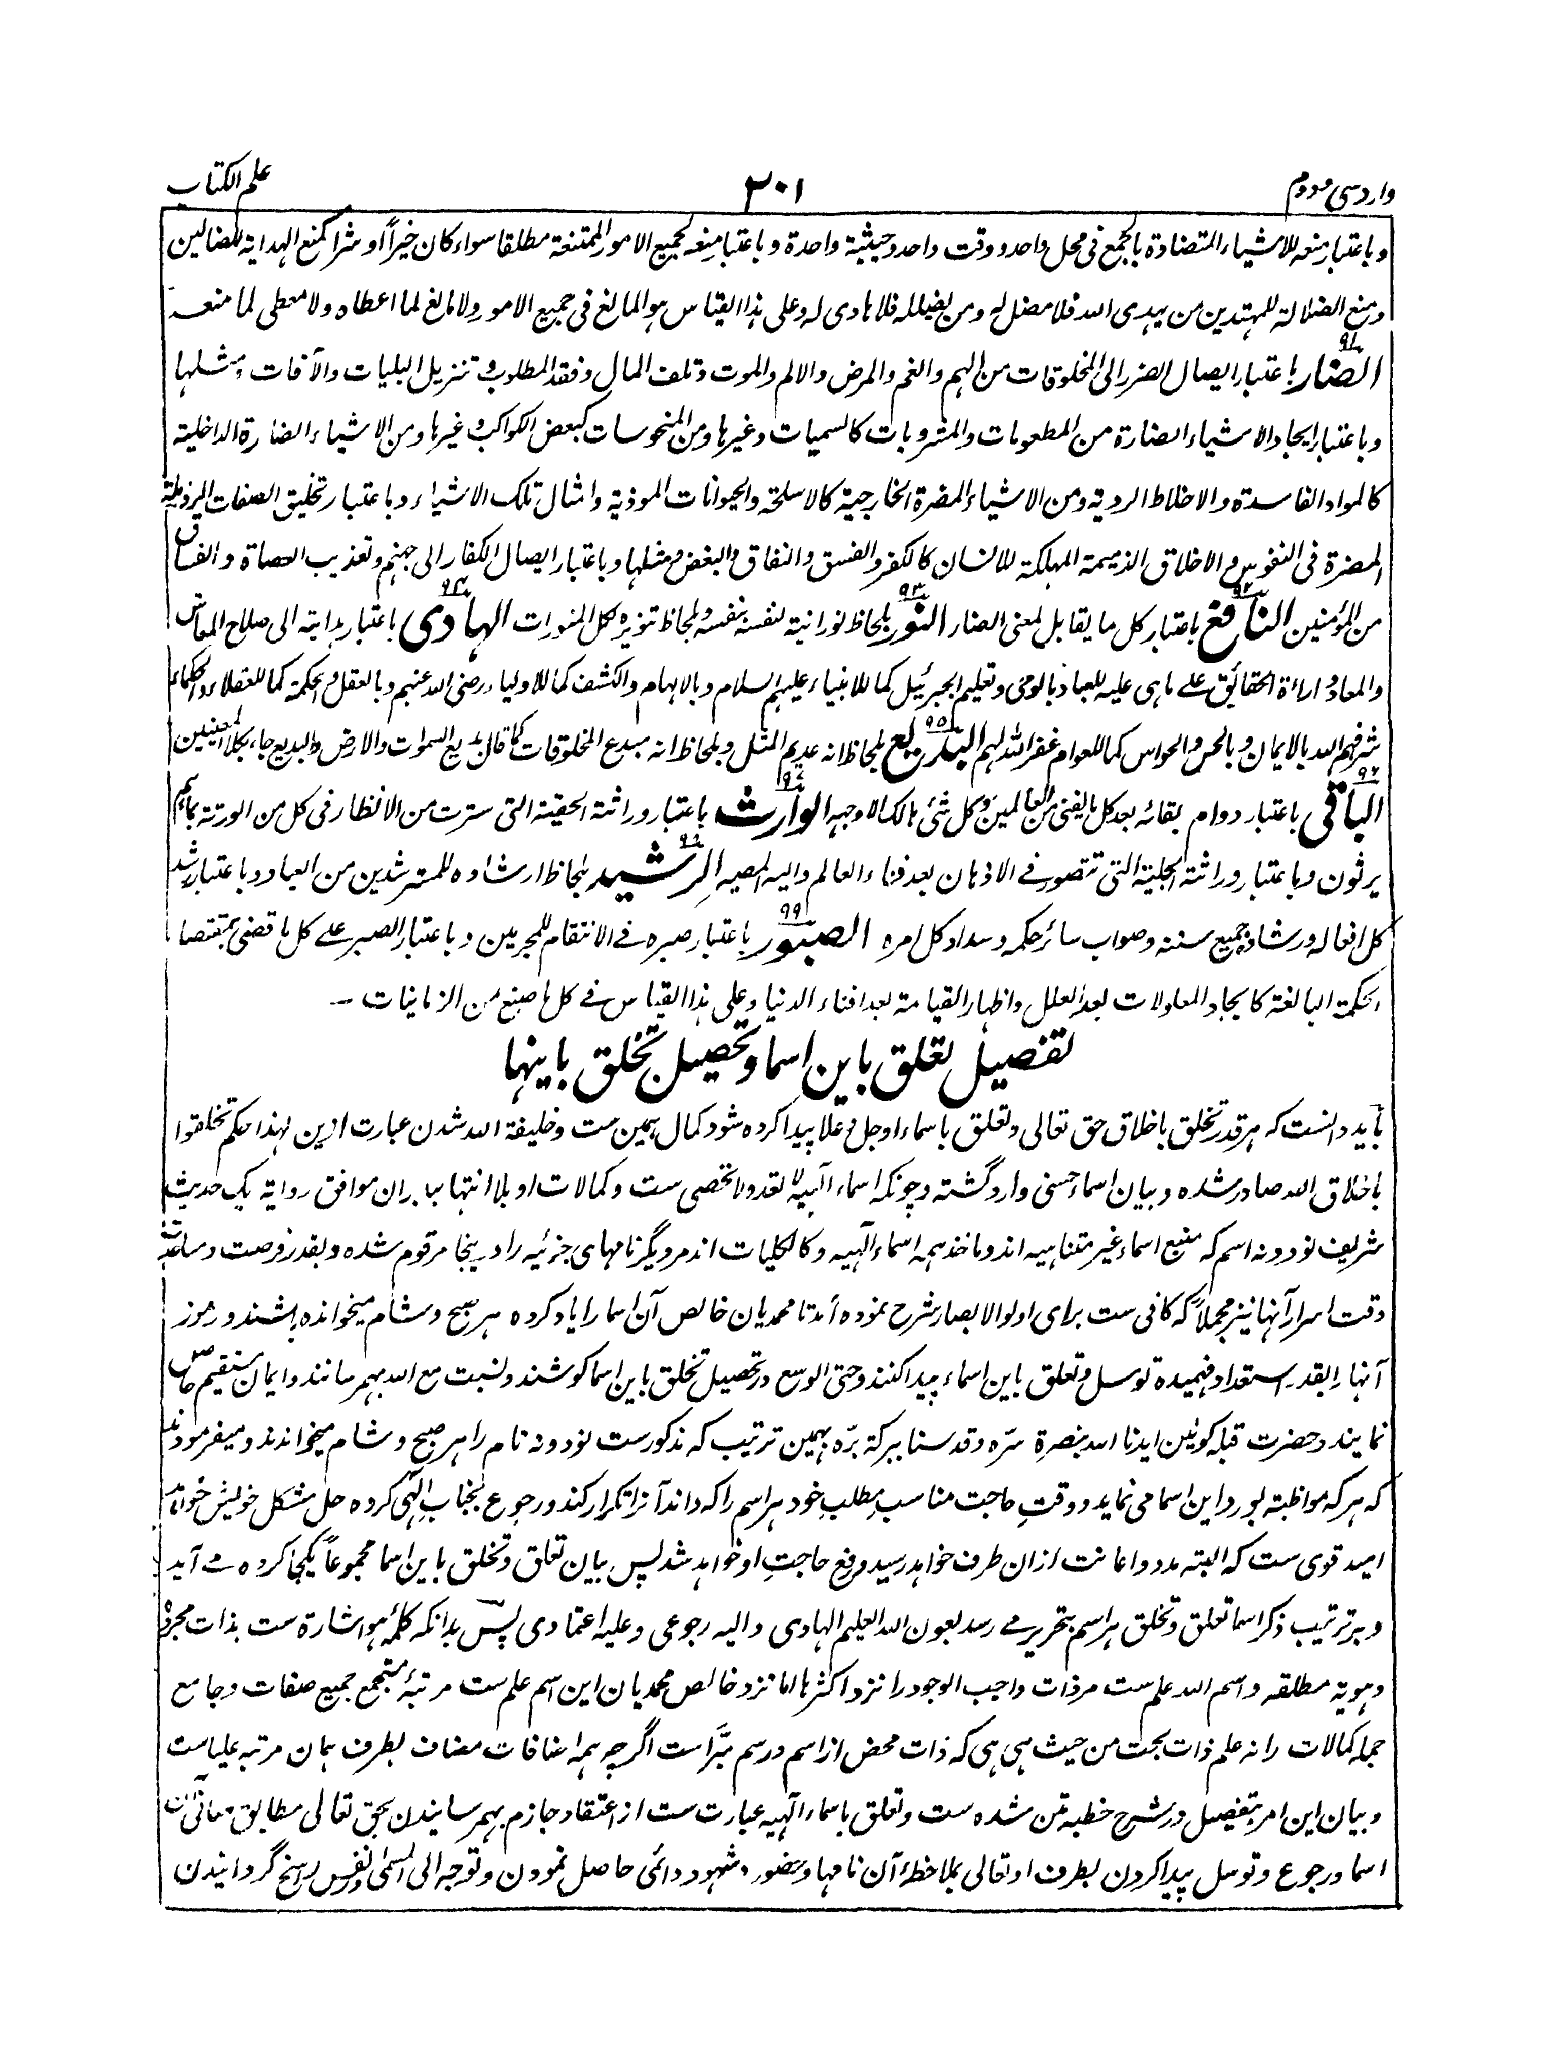 وارد سی و دوم
۳۰۱
علم الکتاب
و باعتبار منعه للاشیاء المتضادة بالجمع فی محل واحد و وقت واحد و حیثیة واحدة و باعتبار منعه لجمیع الامور الممتنعة مطلقا سواء کان خیراً او شرا کمنع الهدایة للضالین
و منع الضلالة للمهتدین من یهدی الله فلا مضل له و من یضلله فلا هادی له و علی هذا القیاس هو المانع فی جمیع الامور ولا مانع لما اعطاه ولا معطی لما منعه
۹۱
الضار باعتبار ایصال الضرر الی المخلوقات من الهم والغم والمرض والالم والموت و تلف المال و فقد المطلوب و تنزیل البلیات والآفات و مثلها
و باعتبار ایجاد الاشیاء الضارة من المطعومات والمشروبات کالسمیات و غیرها و من المنحوسات کبعض الکواکب و غیرها و من الاشیاء الضارة الداخلیة
کالمواد الفاسدة والاخلاط الردیة و من الاشیاء المضرة الخارجیة کالاسلحة والحیوانات الموذیة و امثال تلک الاشیاء و باعتبار تخلیق الصفات الرذیلة
المضرة فی النفوس والاخلاق الذمیمة المهلکة للانسان کالکفر والفسق والنفاق والبغض و مثلها و باعتبار ایصال الکفار الی جهنم و تعذیب العصاة والفساق
۹۲ ۹۳ ۹۴
من المؤمنین النافع باعتبار کل ما یقابل لمعنی الضار النور بلحاظ نورانیة لنفسه بنفسه و بلحاظ تنویره کل المنورات الهادی باعتبار هدایته الی صلاح المعاش
والمعاد و اراءة الحقائق علے ما هی علیه للعباد بالوحی و تعلیم الجبرئیل کما للانبیاء علیهم السلام و بالالهام والکشف کما للاولیاء رضی الله عنهم و بالعقل والحکمة کما للعقلاء والحکماء
۹۵
شرفهم الله بالایمان و بالحس والحواس کما للعوام غفر الله لهم البدیع بلحاظ انه عدیم المثل و بلحاظ انه مبدع المخلوقات کما قال بدیع السموات والارض والبدیع جاء بکلا المعنیین
۹۶ ۹۷
الباقی باعتبار دوام بقائه بعد کل ما یفنی من العالمین و کل شئ هالک الا وجهه الوارث باعتبار وراثته الحقیقة التی سترت من الانظار فی کل من الورثة بما هم
۹۸
یرثون و باعتبار وراثته الجلیة التی تتصور فی الاذهان بعد فناء العالم والیه المصیر الرشید بلحاظ ارشاده للمسترشدین من العباد و باعتبار رشد
۹۹
کل افعاله و رشاد جمیع سننه و صواب سائر حکمه و سداد کل امره الصبور باعتبار صبره فے الانتقام للمجرمین و باعتبار الصبر علے کل ما قضی بمقتضا
الحکمة البالغة کایجاد المعلولات بعد العلل و اظهار القیامة بعد افناء الدنیا و علی هذا القیاس فے کل ما صنع من الزمانیات ــ
تفصیل تعلق باین اسما و تحصیل تخلق باینها
باید دانست که هر قدر تخلق باخلاق حق تعالی و تعلق باسماء او جل و علا پیدا کرده شود کمال همین ست و خلیفة الله شدن عبارت ازین لهذا حکم تخلقوا
باخلاق الله صادر شده و بیان اسماء حسنی وارد گشته و چونکه اسماء الٰهیه لا تعد ولا تحصی ست و کمالات او بلا انتها بنابران موافق روایة یک حدیث
شریف نود و نه اسم که منبع اسماء غیر متناهیه اند و ماخذ همه اسماء الٰهیه و کالکلیات اند مر دیگر نامهای جزئیه را درینجا مرقوم شده و بقدر فرصت و مساعدت
وقت اسرار آنها نیز مجملاً که کافی ست برای اولو الابصار شرح نموده آمد تا محمدیان خالص آن اسما را یاد کرده هر صبح و شام میخوانده باشند و رموز
آنها را بقدر استعداد فهمیده توسل و تعلق باین اسماء پیدا کنند و حتی الوسع در تحصیل تخلق باین اسما کوشند و نسبت مع الله بهم رسانند و ایمان مستقیم حاصل
نمایند و حضرت قبله کونین ایدنا الله بنصرة سره و قدسنا ببرکة بره بهمین ترتیب که مذکورست نود و نه نام را هر صبح و شام میخواندند و میفرمودند
که هر که مواظبة بورد این اسما می نماید و وقت حاجت مناسب مطلب خود هر اسم را که داند آنرا تکرار کند و رجوع بجناب الٰهی کرده حل مشکل خویش خواهد
امید قوی ست که البته مدد و اعانت ازان طرف خواهد رسید و رفع حاجت او خواهد شد پس بیان تعلق و تخلق باین اسما مجموعاً یکجا کرده مے آید
و بر ترتیب ذکر اسما تعلق و تخلق هر اسم بتحریر مے رسد بعون الله العلیم الهادی و الیه رجوعی و علیه اعتمادی پس بدانکه کلمه هو اشارة ست بذات مجرد
و هویة مطلقه و اسم الله علم ست مر ذات واجب الوجود را نزد اکثرها اما نزد خالص محمدیان این اسم علم ست مرتبهٔ مستجمع جمیع صفات و جامع
جمله کمالات را نه علم ذات بحت من حیث هی هی که ذات محض از اسم و رسم مبرّاست اگرچه همه اضافات مضاف بطرف همان مرتبه علیاست
و بیان این امر بتفصیل در شرح خطبه متن شده ست و تعلق باسماء الٰهیه عبارت ست از اعتقاد جازم بهم رسانیدن بحق تعالی مطابق معانی آن
اسما و رجوع و توسل پیدا کردن بطرف او تعالی بملاحظهٔ آن نامها و حضور و شهود دائمی حاصل نمودن و توجه الی المسمی در نفس راسخ گردانیدن